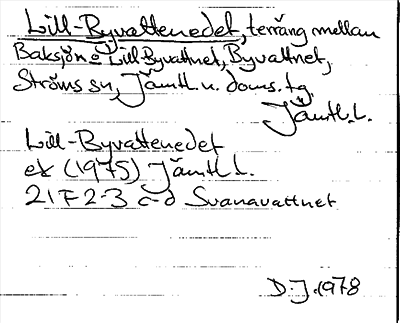 Lill-Byvattenedet, terräng mellan
Baksjön o Lill-Byvattnet, Byvattnet,
Ströms sn, Jämtl. n. doms. tg,
Jämtl. L.
Lill-Byvattenedet
ek (1975) Jämtl L.
21F 2-3 c-d Svanavattnet
D.J. 1978